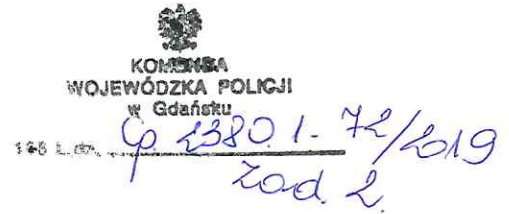 KOMENDA
WOJEWÓDZKA POLICJI
w Gdańsku
L.dz. Cp 2380.1-72/2019
Zad. 2